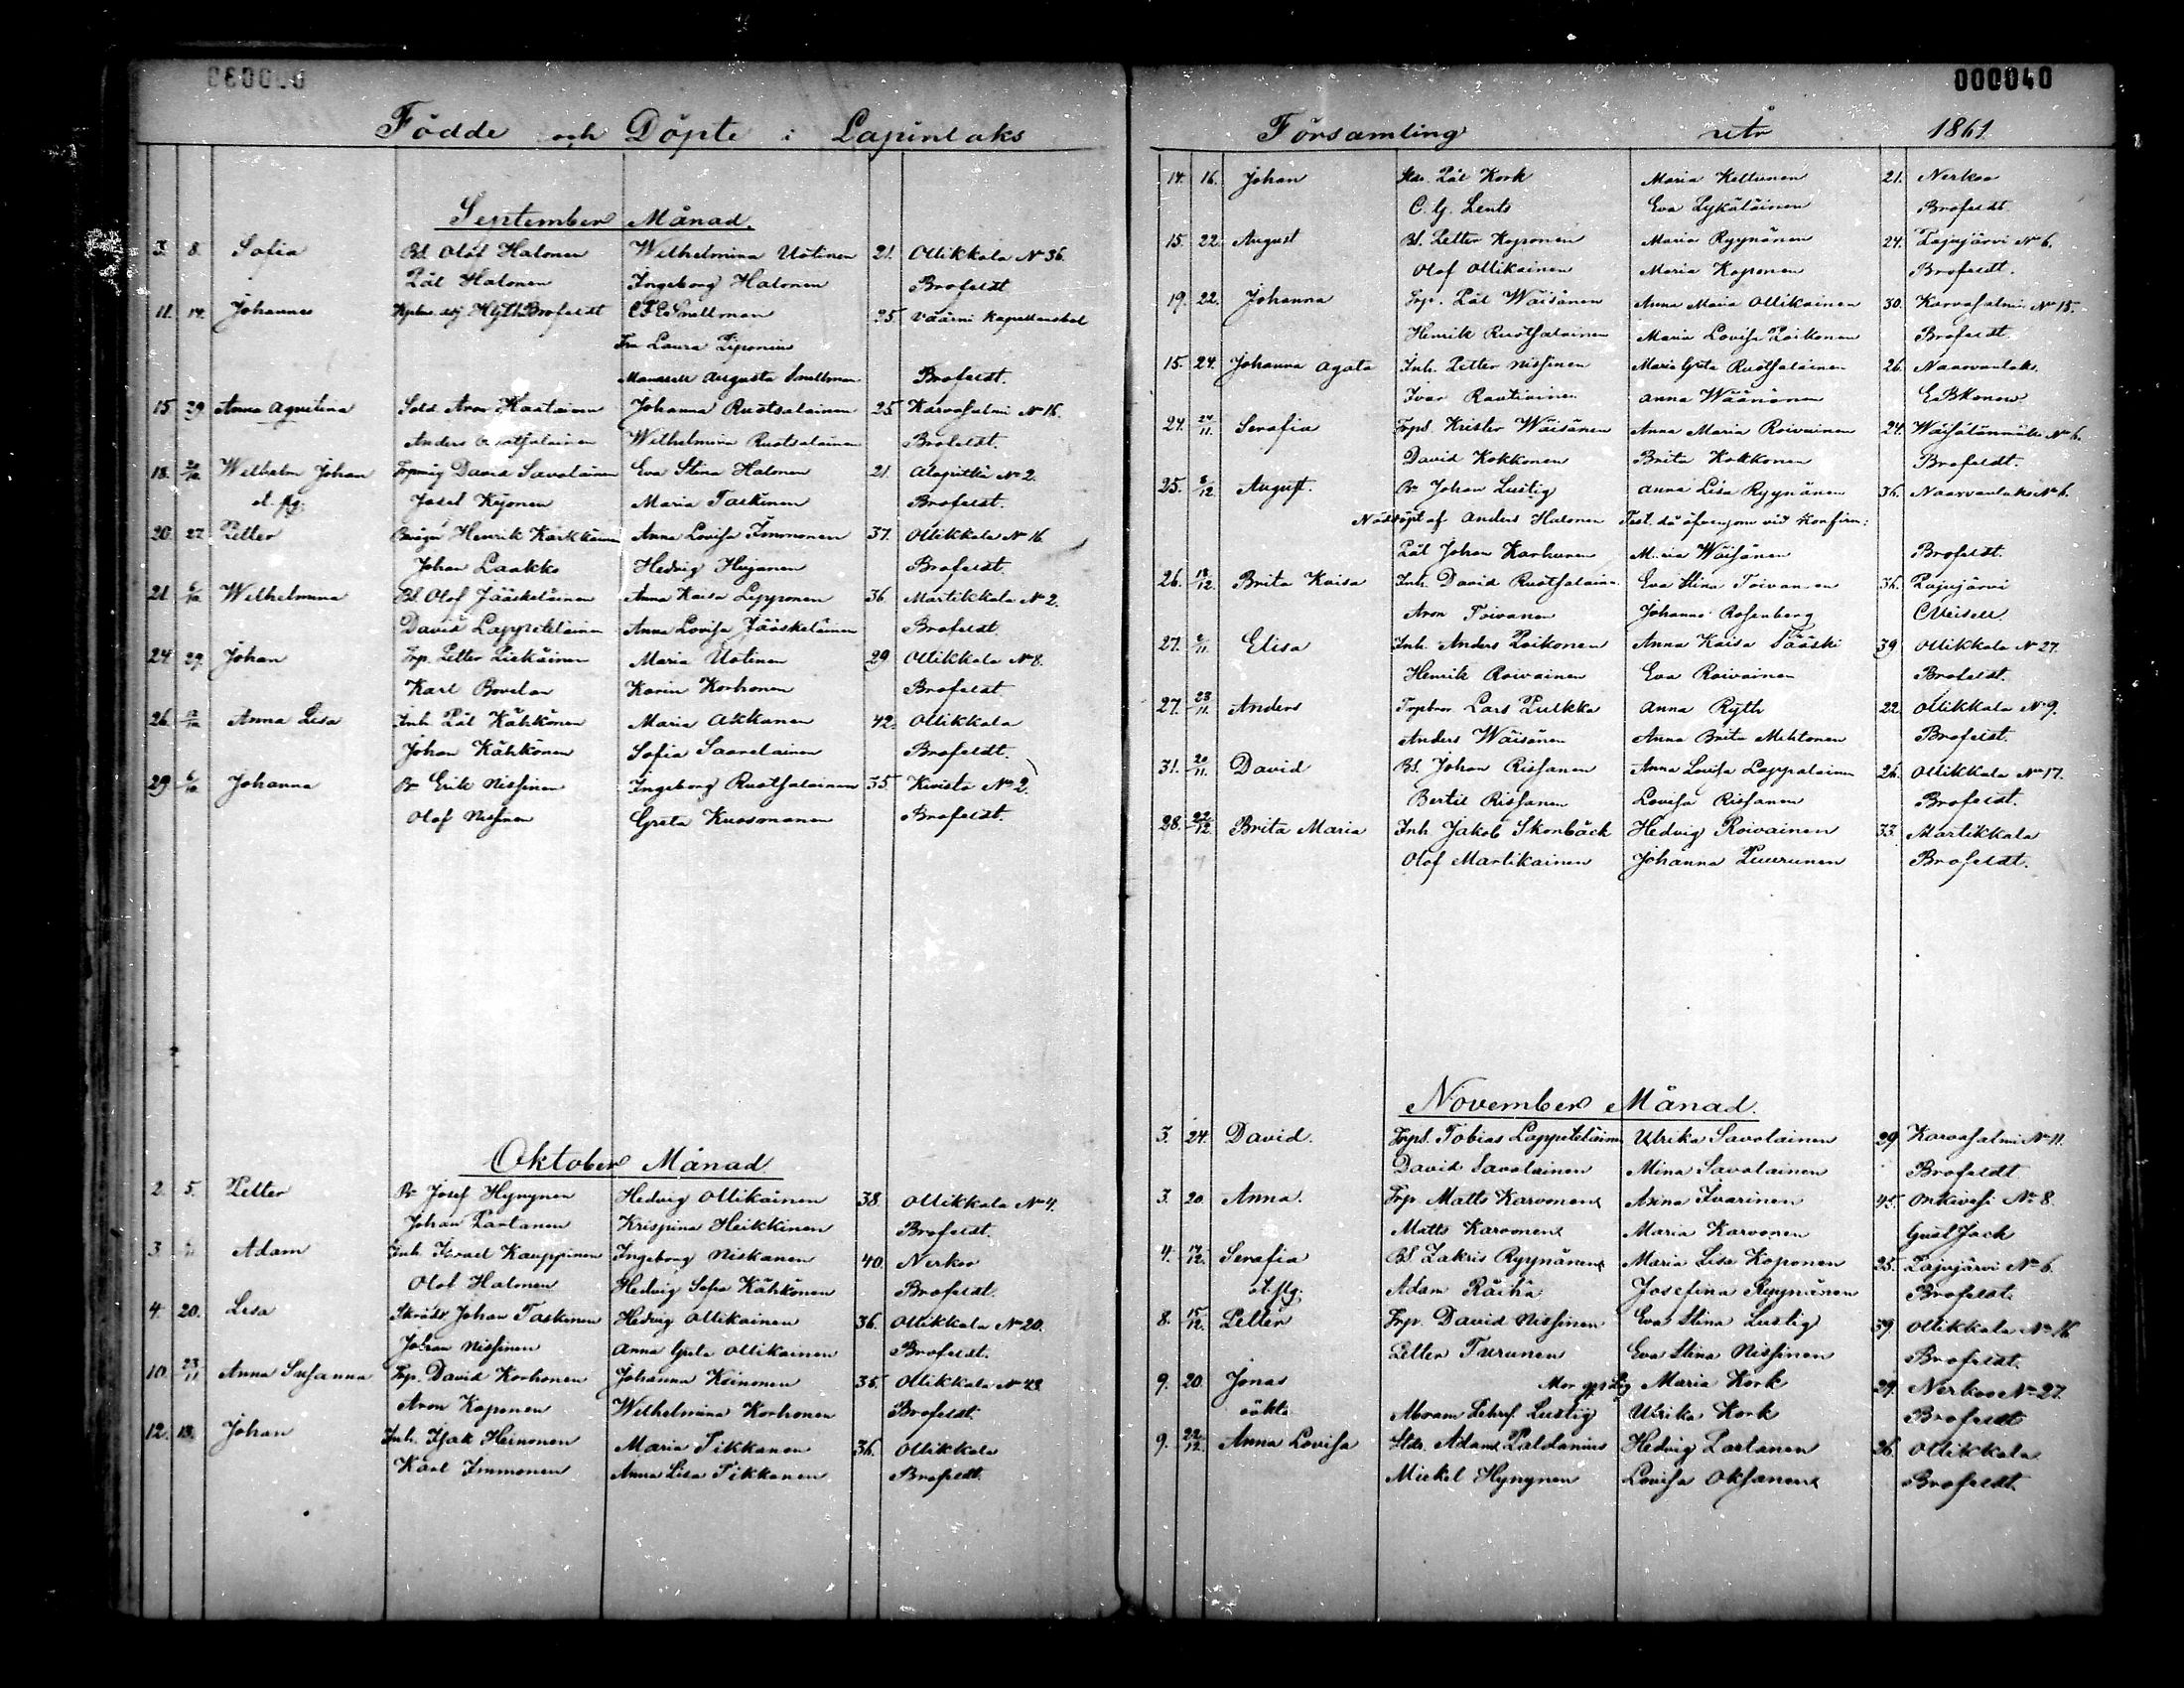 000040
Födde och Döpte i Lapinlaks
September Månad.
3. 8. Sofia Bd. Olof Halonen Wilhelmina Uotinen 21. Ollikkala No 36.
Pål Halonen Ingeborg Halonen Brofeldt
11. 14. Johannes Brofeldt Snellman 25. Väärni Kapellansbol
Fru Laura
Mamsell Augusta Snellman Brofeldt.
15. 29. Anna Aquilina Sold. Aron Johanna Ruotsalainen 25. Karvasalmi No 16.
Anders Wilhelmina Ruotsalainen Brofeldt.
18. Wilhelm Johan David Savolainen Eva Stina Halonen 21. Alapitkä No 2.
Josef Maria Taskinen Brofeldt.
20. 27. Petter Henrik Kärkkäinen Anna Lovisa Immonen 37. Ollikkala No 16
Johan Laakko Hedvig Brofeldt.
21. Wilhelmina Bd. Olof Jääskeläinen Anna Kaisa Lipponen 36. Martikkala No 2.
David Lappeteläinen Anna Lovisa Jääskeläinen Brofeldt.
24. 29. Johan Trp. Petter Maria Uotinen 29. Ollikkala No 8.
Karl Karin Korhonen Brofeldt.
26. Anna Lisa Inh. Pål Kähkönen Maria Akkanen 42. Ollikkala
Johan Kähkönen Sofia Saarelainen Brofeldt.
29. 6/10 Johanna Br. Erik Nissinen Ingeborg Ruotsalainen 35. Kivistö No 2.
Olof Nissinen Greta Kuosmanen Brofeldt.
Oktober Månad
2. 5. Petter Br. Josef Hynynen Hedvig Ollikainen 38. Ollikkala No 4.
Johan Partanen Krispina Heikkinen Brofeldt.
3. Adam Inh. Israel Kauppinen Ingeborg Niskanen 40. Nerkoo
Olof Halonen Hedvig Sofia Kähkönen Brofeldt.
4. 20. Lisa Skrädd. Johan Taskinen Hedvig Ollikainen 36. Ollikkala No 20.
Johan Nissinen Anna Greta Ollikainen Brofeldt.
10. 23/11 Anna Susanna Trp. David Korhonen Johanna Keinonen 35. Ollikkala No 43.
Aron Koponen Wilhelmina Korhonen Brofeldt.
12. 13. Johan Inh. Isak Heinonen Maria Tikkanen 36. Ollikkala
Karl Immonen Anna Lisa Tikkanen Brofeldt.
Församling år 1861
14. 16. Johan Stdr. Pål Kork Maria Keltunen 21. Nerkoo
C. G. Lents Eva Lykäläinen Brofeldt.
15. 22. August Bd. Petter Koponen Maria Ryynänen 24. Pajujärvi No 6.
Olof Ollikainen Maria Koponen Brofeldt.
19. 22. Johanna Trp. Pål Wäisänen Anna Maria Ollikainen 30. Karvasalmi No 15.
Henrik Ruotsalainen Maria Lovisa Poikonen Brofeldt.
15. 24. Johanna Agata Inh. Petter Nissinen Maria Greta Ruotsalainen 26. Naarvanlaks.
Ivar Rautiainen Anna Wäänänen
24. 24/11. Serafia Trpd. Krister Wäisänen Anna Maria Roivainen 24. Wäisälänmäki No 6.
David Kokkonen Brita Kokkonen Brofeldt.
25. 8/12. August. Br. Johan Lustig Anna Lisa Ryynänen 36. Naarvanlaks No 6.
Nöddöpt af Anders Halonen Test. då äfvensom vid Konfirm:
Pål Johan Karhunen Maria Wäisänen Brofeldt.
26. 13/12. Brita Kaisa Inh. David Ruotsalainen Eva Stina Toivanen 36. Pajujärvi
Aron Toivanen Johanna Rosenberg
27. 6/11. Elisa Inh. Anders Poikonen Anna Kaisa Pääski 39. Ollikkala No 27.
Henrik Roivainen Eva Roivainen Brofeldt.
27. 23/11. Anders Lars Pulkka Anna Ryth 22. Ollikkala No 9.
Anders Wäisänen Anna Brita Mehtonen Brofeldt.
31. 20/11. David Bd. Johan Rissanen Anna Lovisa Lappalainen 26. Ollikkala No 17.
Bertil Rissanen Lovisa Rissanen Brofeldt.
28. 22/12. Brita Maria Inh. Jakob Skonbäck Hedvig Roivainen 33. Martikkala
Olof Martikainen Johanna Puurunen Brofeldt.
November Månad.
3. 24. David. Trpd. Tobias Lappeteläinen Ulrika Savolainen 29. Karvasalmi No 11.
David Savolainen Mina Savolainen Brofeldt
3. 20. Anna. Trp. Matts Karvonen Anna Ivarinen 45. Onkivesi No 8.
Matts Karvonen Maria Karvonen Gust Jack
4. 17/12. Serafia Bd. Zakris Ryynänen Maria Lisa Koponen 25. Pajujärvi No 6.
Adam Räihä Josefina Ryynänen Brofeldt.
8. 15/12. Petter Trp. David Nissinen Eva Stina Lustig 39. Ollikkala No 16
Petter Turunen Eva Stina Nissinen Brofeldt.
9. 20. Jonas Mor Maria Kork 29. Nerkoo No 27.
oäkta Abram Lustig Ulrika Kork Brofeldt
9. 22/12. Anna Lovisa Stdr. Adam Paldanius Hedvig Partanen 26. Ollikkala
Mickel Hynynen Lovisa Oksanen Brofeldt.